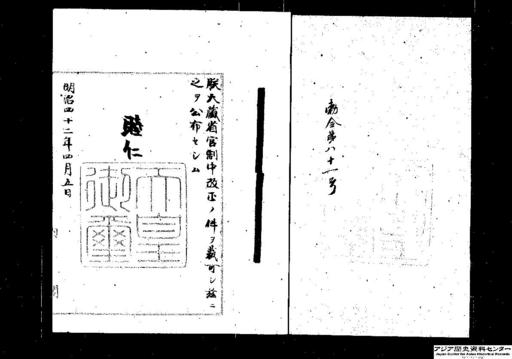 勅令第八十一号
朕大蔵省官制中改正ノ件ヲ裁可シ茲ニ
之ヲ公布セシム
睦仁
天皇御璽
明治四十二年四月五日
アジア歴史資料センター
Japan Center for Asian Historical Records